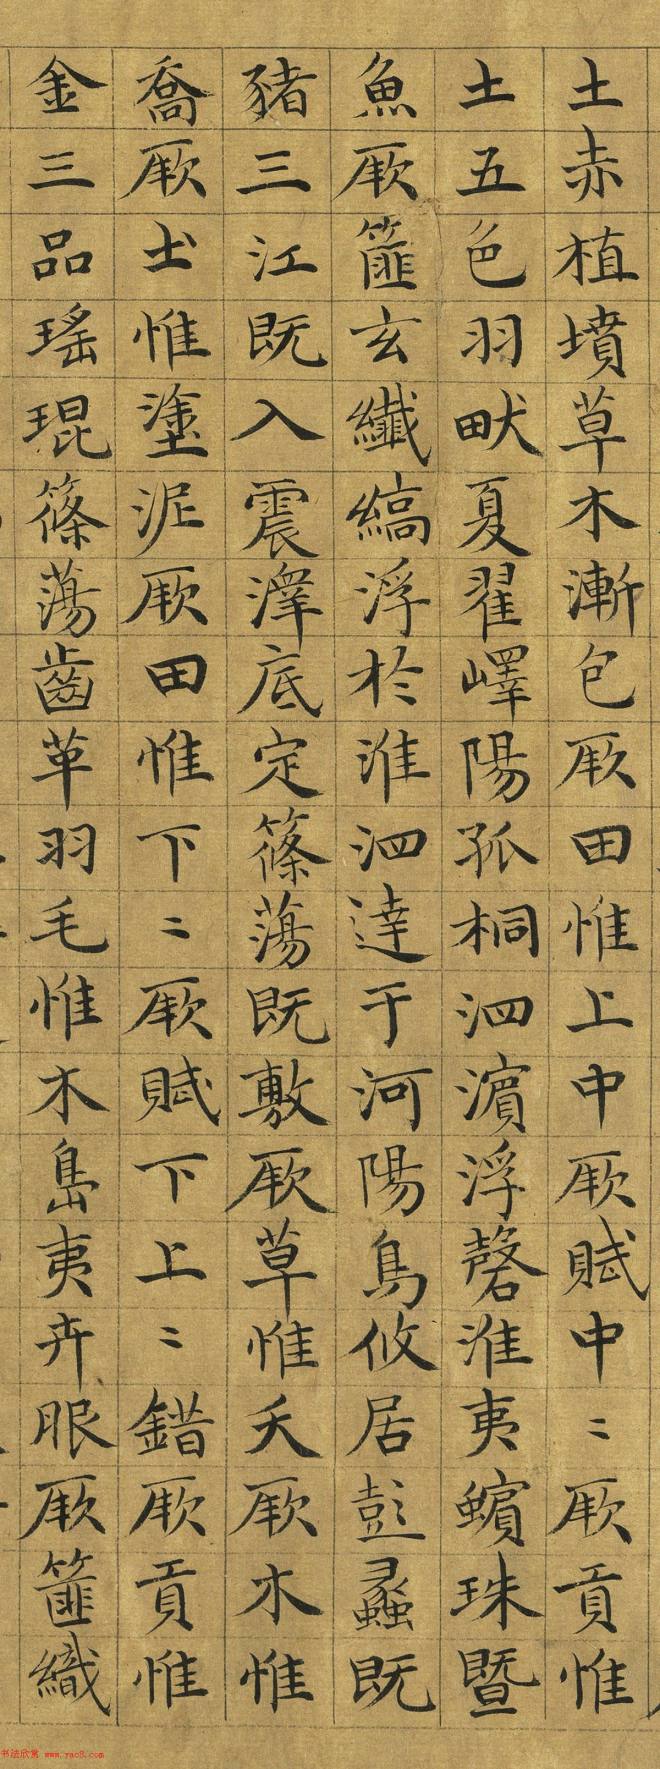 土赤植墳草木漸包厥田惟上中厥賦中〻厥貢惟
土五色羽畎夏翟嶧陽孤桐泗濱浮磬淮夷蠙珠暨
魚厥篚玄纖縞浮於淮泗達于河陽鳥攸居彭蠡既
豬三江既入震澤底定篠蕩既敷厥草惟夭厥木惟
喬厥土惟塗泥厥田惟下〻厥賦下上〻錯厥貢惟
金三品瑤琨篠蕩齒革羽毛惟木島夷卉服厥篚織
书法欣赏 www.yac8.com